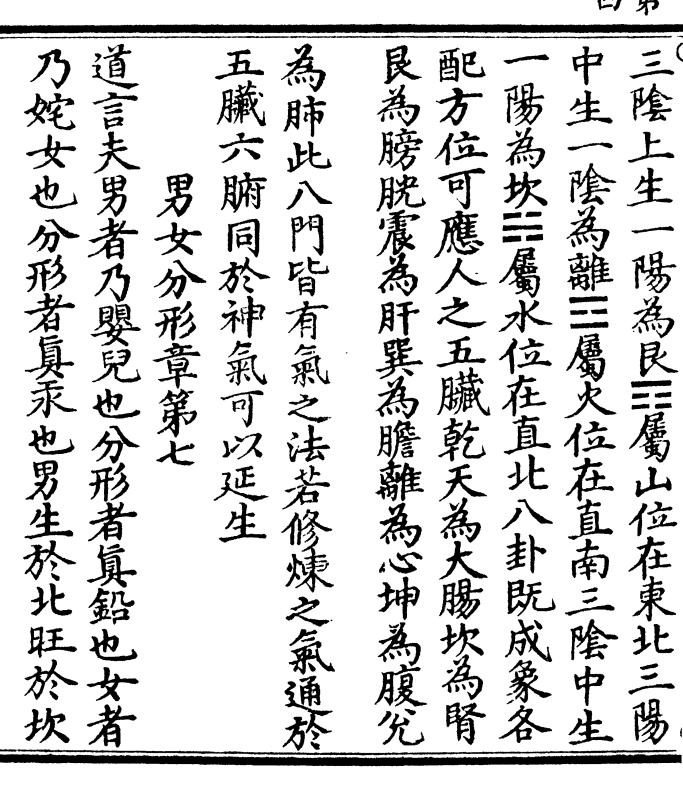 三陰上生一陽為艮☶屬山位在東北三陽
中生一陰為離☲屬火位在直南三陰中生
一陽為坎☵屬水位在直北八卦既成象各
配方位可應人之五臟乾天為大腸坎為腎
艮為膀胱震為肝巽為膽離為心坤為腹兊
為肺此八門皆有氣之法若修煉之氣通於
五臟六腑同於神氣可以延生
男女分形章第七
道言夫男者乃嬰兒也分形者眞鉛也女者
乃姹女也分形者眞汞也男生於北旺於坎